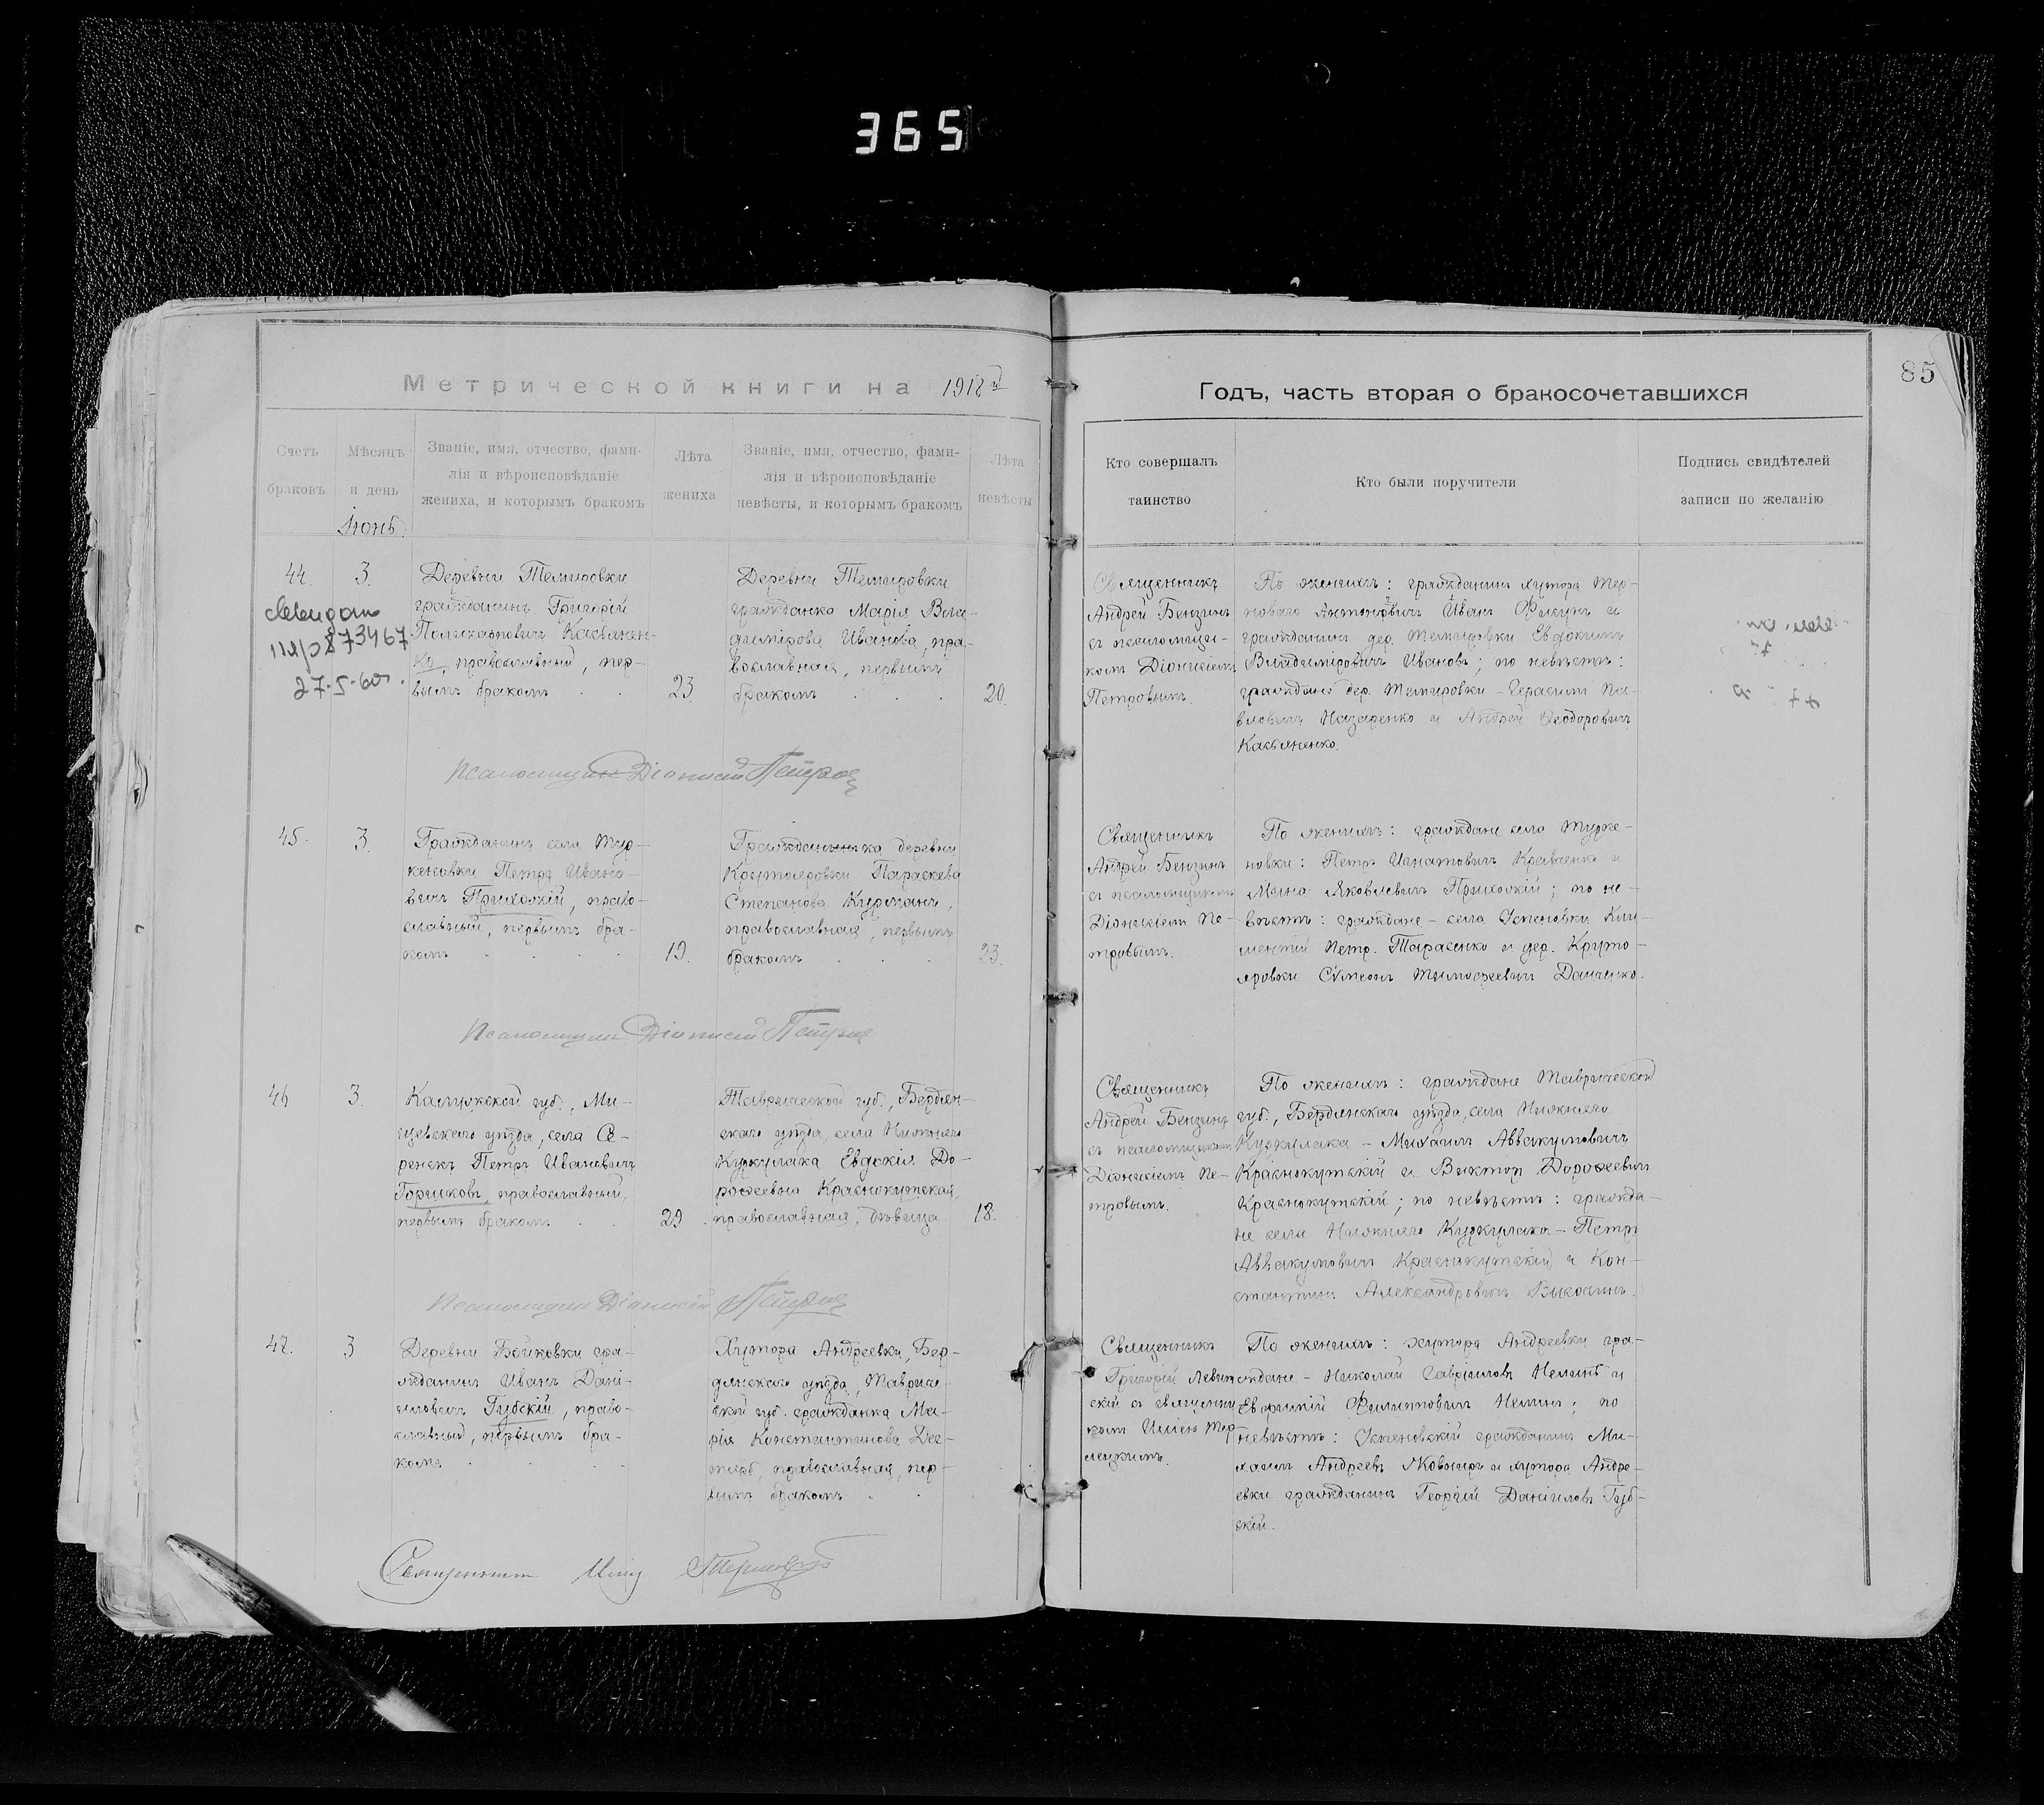 365
85
Метрической книги на 1918 й
Годъ, часть вторая о бракосочетавшихся
Счетъ
браковъ
Мѣсяцъ
и день
Званіе, имя, отчество, фами-
лія и вѣроисповѣданіе
жениха, и которымъ бракомъ
Лѣта
жениха
Званіе, имя, отчество, фами-
лія и вѣроисповѣданіе
невѣсты, и которымъ бракомъ
Лѣта
невѣсты
Кто совершалъ
таинство
Кто были поручители
Подпись свидѣтелей
записи по желанію
Іюнь.
44.
873467
27-5-60
3.
Деревни Темировки
гражданинъ Григорій
Поликарповичъ Касьянен-
ко, православный, пер-
вымъ бракомъ
23.
Деревни Темировки
гражданка Марія Вла-
димірова Иванова, пра-
вославная, первымъ
бракомъ
20.
Священникъ
Андрей Бензинъ
съ псаломщи-
комъ Діонисіемъ
Петровымъ.
По женихѣ: гражданинъ хутора Тер-
новаго Антоновичъ Иванъ Фикунъ и
гражданинъ дер. Темировки Евдокимъ
Владиміровичъ Ивановъ; по невѣстѣ:
граждане дер. Темировки – Герасимъ Па-
вловичъ Назаренко и Андрей Ѳеодоровичъ
Касьяненко.
Псаломщикъ Діонисій Петровъ
45.
3.
Гражданинъ села Тур-
кеновки Петръ Ивано-
вичъ Прихожій, право-
славный, первымъ бра-
комъ
19.
Гражданка деревни
Крутояровки Параскева
Степанова Курманъ,
православная, первымъ
бракомъ
23.
Священникъ
Андрей Бензинъ
съ псаломщикомъ
Діонисіемъ Пе-
тровымъ.
По женихѣ: граждане села Турке-
новки: Петръ Игнатовичъ Кравченко и
Мина Яковлевичъ Прихожій; по не-
вѣстѣ: граждане – села Успеновки Кли-
ментій Петр. Тарасенко и дер. Круто-
яровки Сѵмеонъ Тимоѳеевичъ Данченко.
Псаломщикъ Діонисій Петровъ
46
3.
Калужской губ., Ме-
щевскаго уѣзда, села Се-
ренскъ Петръ Ивановичъ
Горшковъ, православный,
первымъ бракомъ
29.
Таврической губ., Бердян-
скаго уѣзда, села Нижняго
Куркулака Евдокія До-
роѳеевна Краснокутская,
православная, дѣвица
18.
Священникъ
Андрей Бензинъ
съ псаломщикомъ
Діонисіемъ Пе-
тровымъ.
По женихѣ: граждане Таврической
губ., Бердянскаго уѣзда, села Нижняго
Куркулака – Михаилъ Аввакумовичъ
Краснокутскій и Викторъ Дороѳеевичъ
Краснокутскій; по невѣстѣ: гражда-
не села Нижняго Куркулака – Петръ
Аввакумовичъ Краснокутскій и Кон-
стантинъ Александровичъ
Псаломщикъ Діонисій Петровъ
47.
3
Деревни Бойковки гра-
жданинъ Иванъ Дані-
иловичъ Губскій, право-
славный, первымъ бра-
комъ
Хутора Андреевки, Бер-
дянскаго уѣзда, Тавриче-
ской губ. гражданка Ма-
рія Константинова Дег-
тярь, православная, пер-
вымъ бракомъ
Священникъ
Григорій Левит-
скій съ священни-
комъ Иліею Тор-
лецкимъ.
По женихѣ: хутора Андреевки гра-
ждане – Николай Гавріиловъ и
Евфимій Филипповичъ; по
невѣстѣ: Успеновскій гражданинъ Ми-
хаилъ Андреевъ Жовниръ и хутора Андре-
евки гражданинъ Георгій Даніиловъ Губ-
скій.
Священникъ Илія